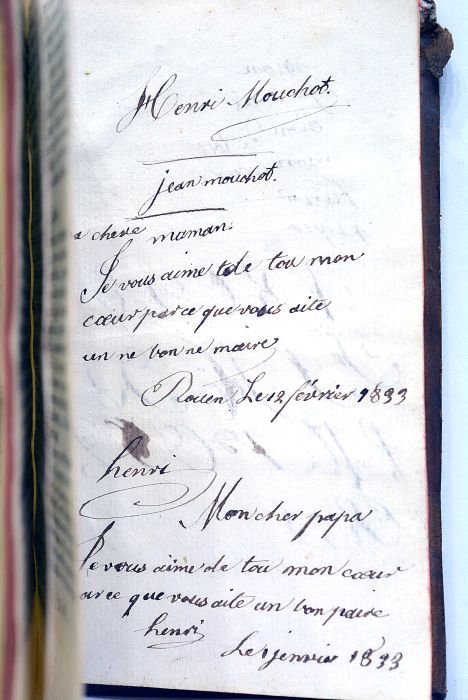 Henri Mouchot.
jean mouchot.
a chere maman
Je vous aime de tou mon
cœur parce que vous aite
un ne bon ne maire
Rouen Le 12 février 1833
henri
Mon cher papa
Je vous aime de tou mon cœur
arce que vous aite un bon paire
henri
Le 1 jenvier 1833